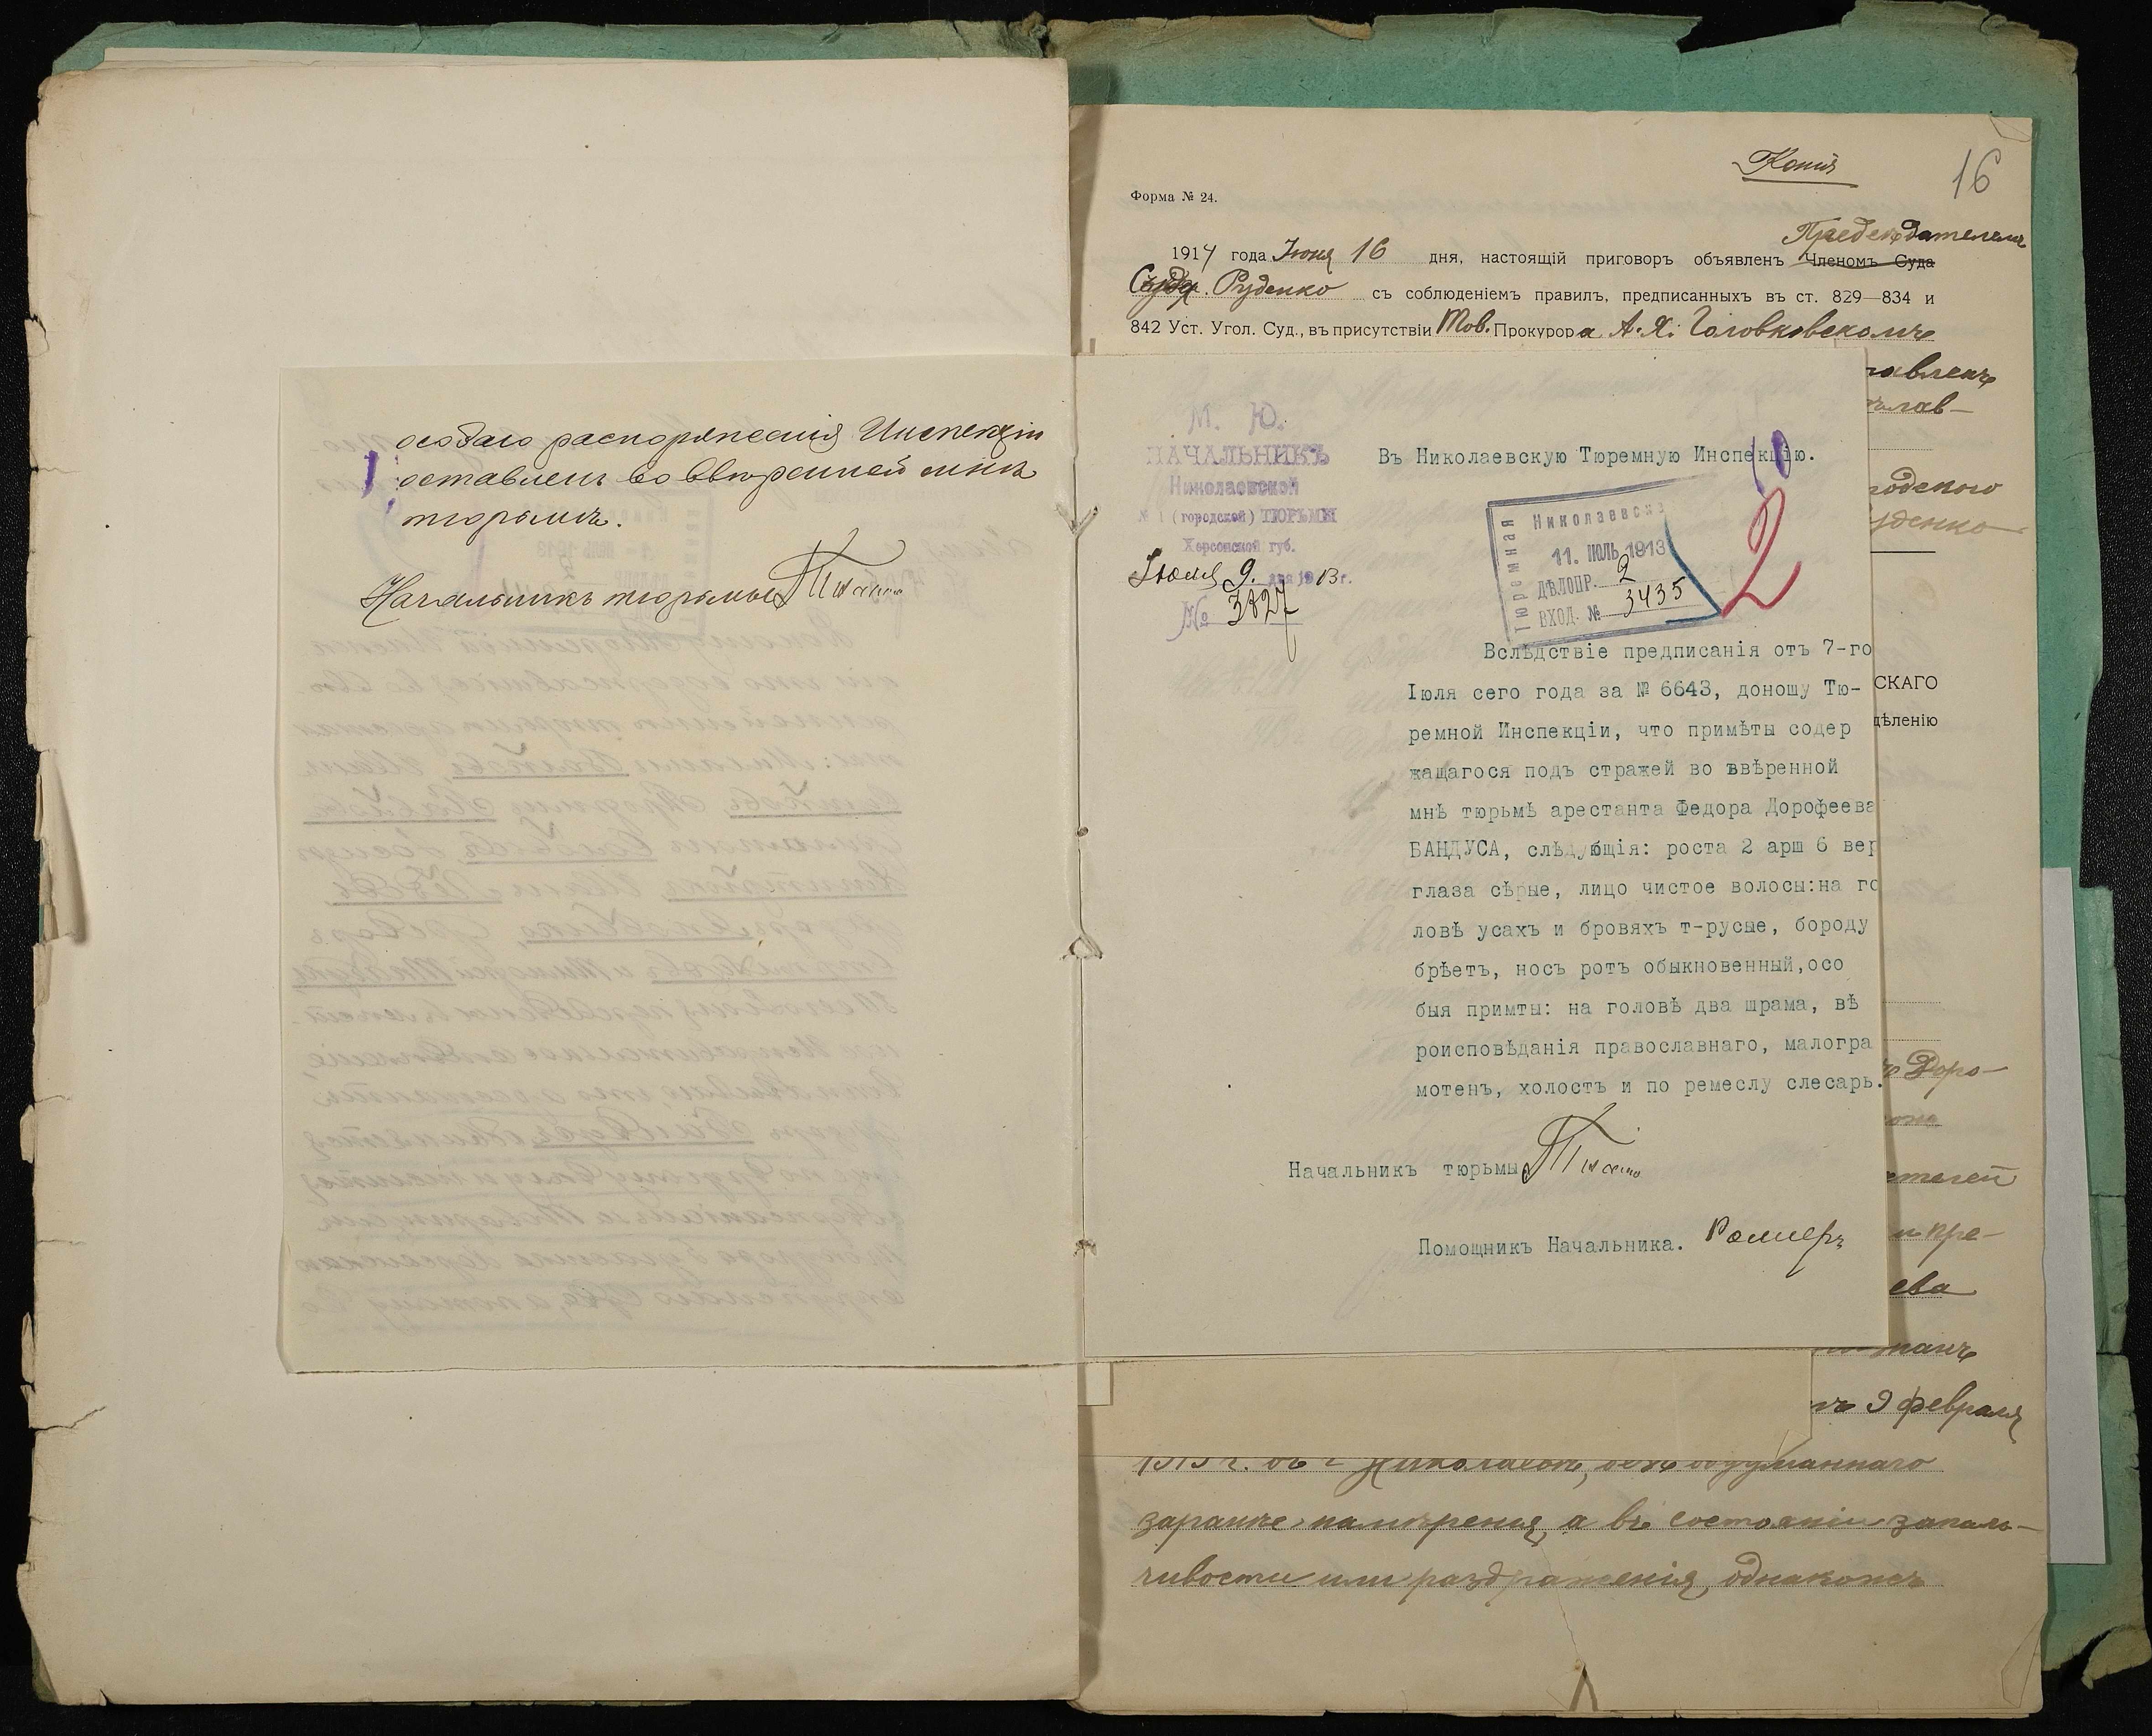 особаго распоряженія Инспекціи
оставленъ во ввѣренной мнѣ
тюрьмѣ.
Начальникъ тюрьмы
Копія
16
Форма № 24.
1914 года Іюня 16 дня, настоящій приговоръ объявленъ Членомъ Суда
Предсѣдателемъ
Суда. Руденко съ соблюденіемъ правилъ, предписанныхъ въ ст. 829—834 и
842 Уст. Угол. Суд., въ присутствіи Тов. Прокурора А. Я. Головковскомъ
авленъ
лав-
М. Ю.
НАЧАЛЬНИКЪ
Николаевской
№ 1 (городской) ТЮРЬМЫ
Херсонской губ.
Іюля 9. дня 1913 г.
№ 3827
Въ Николаевскую Тюремную Инспекцію.
10
Тюремная
Николаевска
11. ІЮЛЬ 1913
ДѢЛОПР. 2
ВХОД. № 3435
2
одского
уденко
Вслѣдствіе предписанія отъ 7-го
Іюля сего года за № 6643, доношу Тю-
ремной Инспекціи, что примѣты содер
жащагося подъ стражей во ввѣренной
мнѣ тюрьмѣ арестанта Федора Дорофеева
БАНДУСА, слѣдующія: роста 2 арш 6 вер
глаза сѣрые, лицо чистое волосы:на го
ловѣ усахъ и бровяхъ т-русые, бороду
брѣетъ, носъ ротъ обыкновенный,осо
быя примты: на головѣ два шрама, вѣ
роисповѣданія православнаго, малогра
мотенъ, холостъ и по ремеслу слесарь.
Начальникъ тюрьмы
Помощникъ Начальника. Ромеръ
СКАГО
дѣленію
Доро-
ателей
и пре-
ева
9 февраля
1913 г. въ г Николаевѣ, безъ обдуманнаго
заранѣе намѣренія, а въ состояніи запаль-
чивости или раздраженія, однакожъ